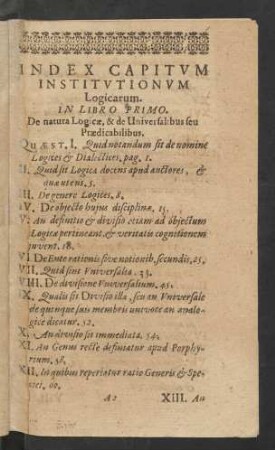 INDEX CAPITVM
INSTITVTIONVM
Logicarum.
IN LIBRO PRIMO.
De natura Logicæ, & de Universalibus seu
Prædicabilibus.
QUÆST. I. Quid notandum sit de nomine
Logices & Dialectices, pag. 1.
II. Quid sit Logica docens apud auctores, &
quæ utens. 5.
III. De genere Logices, 8.
IV. De objecto hujus disciplinæ, 15.
V. An definitio & divisio etiam ad objectum
Logicæ pertineant, & veritatis cognitionem
juvent. 18.
VI De Ente rationis sive notionib, secundis, 25.
VII. Quid sint Vniversalia. 33.
VIII. De divisione Vneversalium. 45.
IX. Qualis sit Divisio illa, seu an Vniversale
de quinque suis membris univoce an analo-
gice dicatur. 52.
X. An divisio sit immediata. 54.
XI. An Genus recte definiatur apud Porphy-
rium. 58.
XII. In quibus reperiatur ratio Generis & Spe-
ciei. 60.
A2 XIII. An